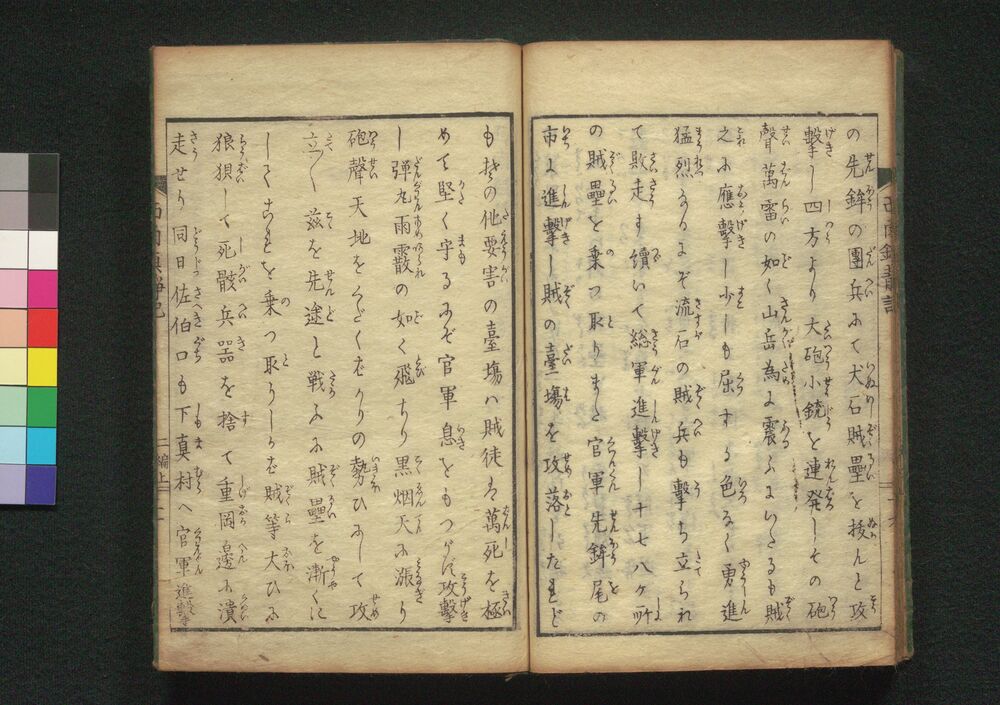 の先鉾の團兵にて犬石賊壘を拔んと攻
擊し四方より大砲小銃を連発しその砲
聲萬雷の如く山岳為に震ふにいたるも賊
之に應擊し少しも屈する色なく勇進
猛烈なるにぞ流石の賊兵も擊ち立られ
て敗走す續いて総軍進擊し十七八ケ所
の賊壘を乗つ取りまた官軍先鉾尾の
市に進擊し賊の臺場を攻落したれど
も其の他要害の臺場ハ賊徒は萬死を極
めて堅く守るにぞ官軍息をもつがず攻擊
し弾丸雨霰の如く飛ちり黒烟天に漲り
砲聲天地をくだくばかりの勢ひにして攻
立〱茲を先途と戦ふに賊壘を漸くに
してこれを乗つ取りしかば賊等大ひに
狼狽して死骸兵器を捨て重岡邉に潰
走せり同日佐伯口も下真村へ官軍進擊
二編上